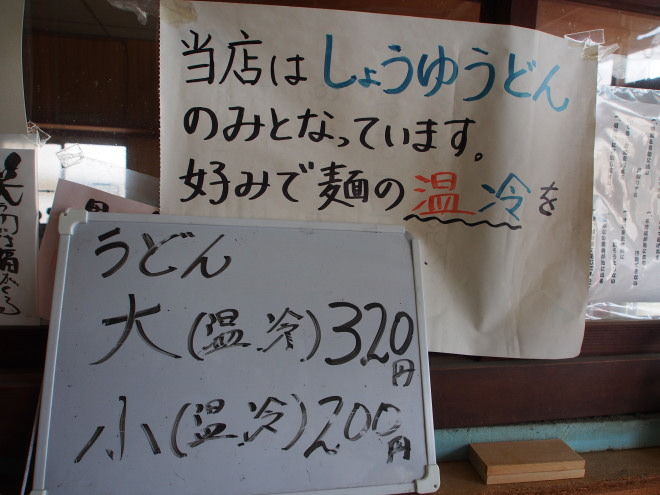 当店はしょうゆうどん
のみとなっています。
好みで麺の温冷を
うどん
大(温冷)320円
小(温冷)200円